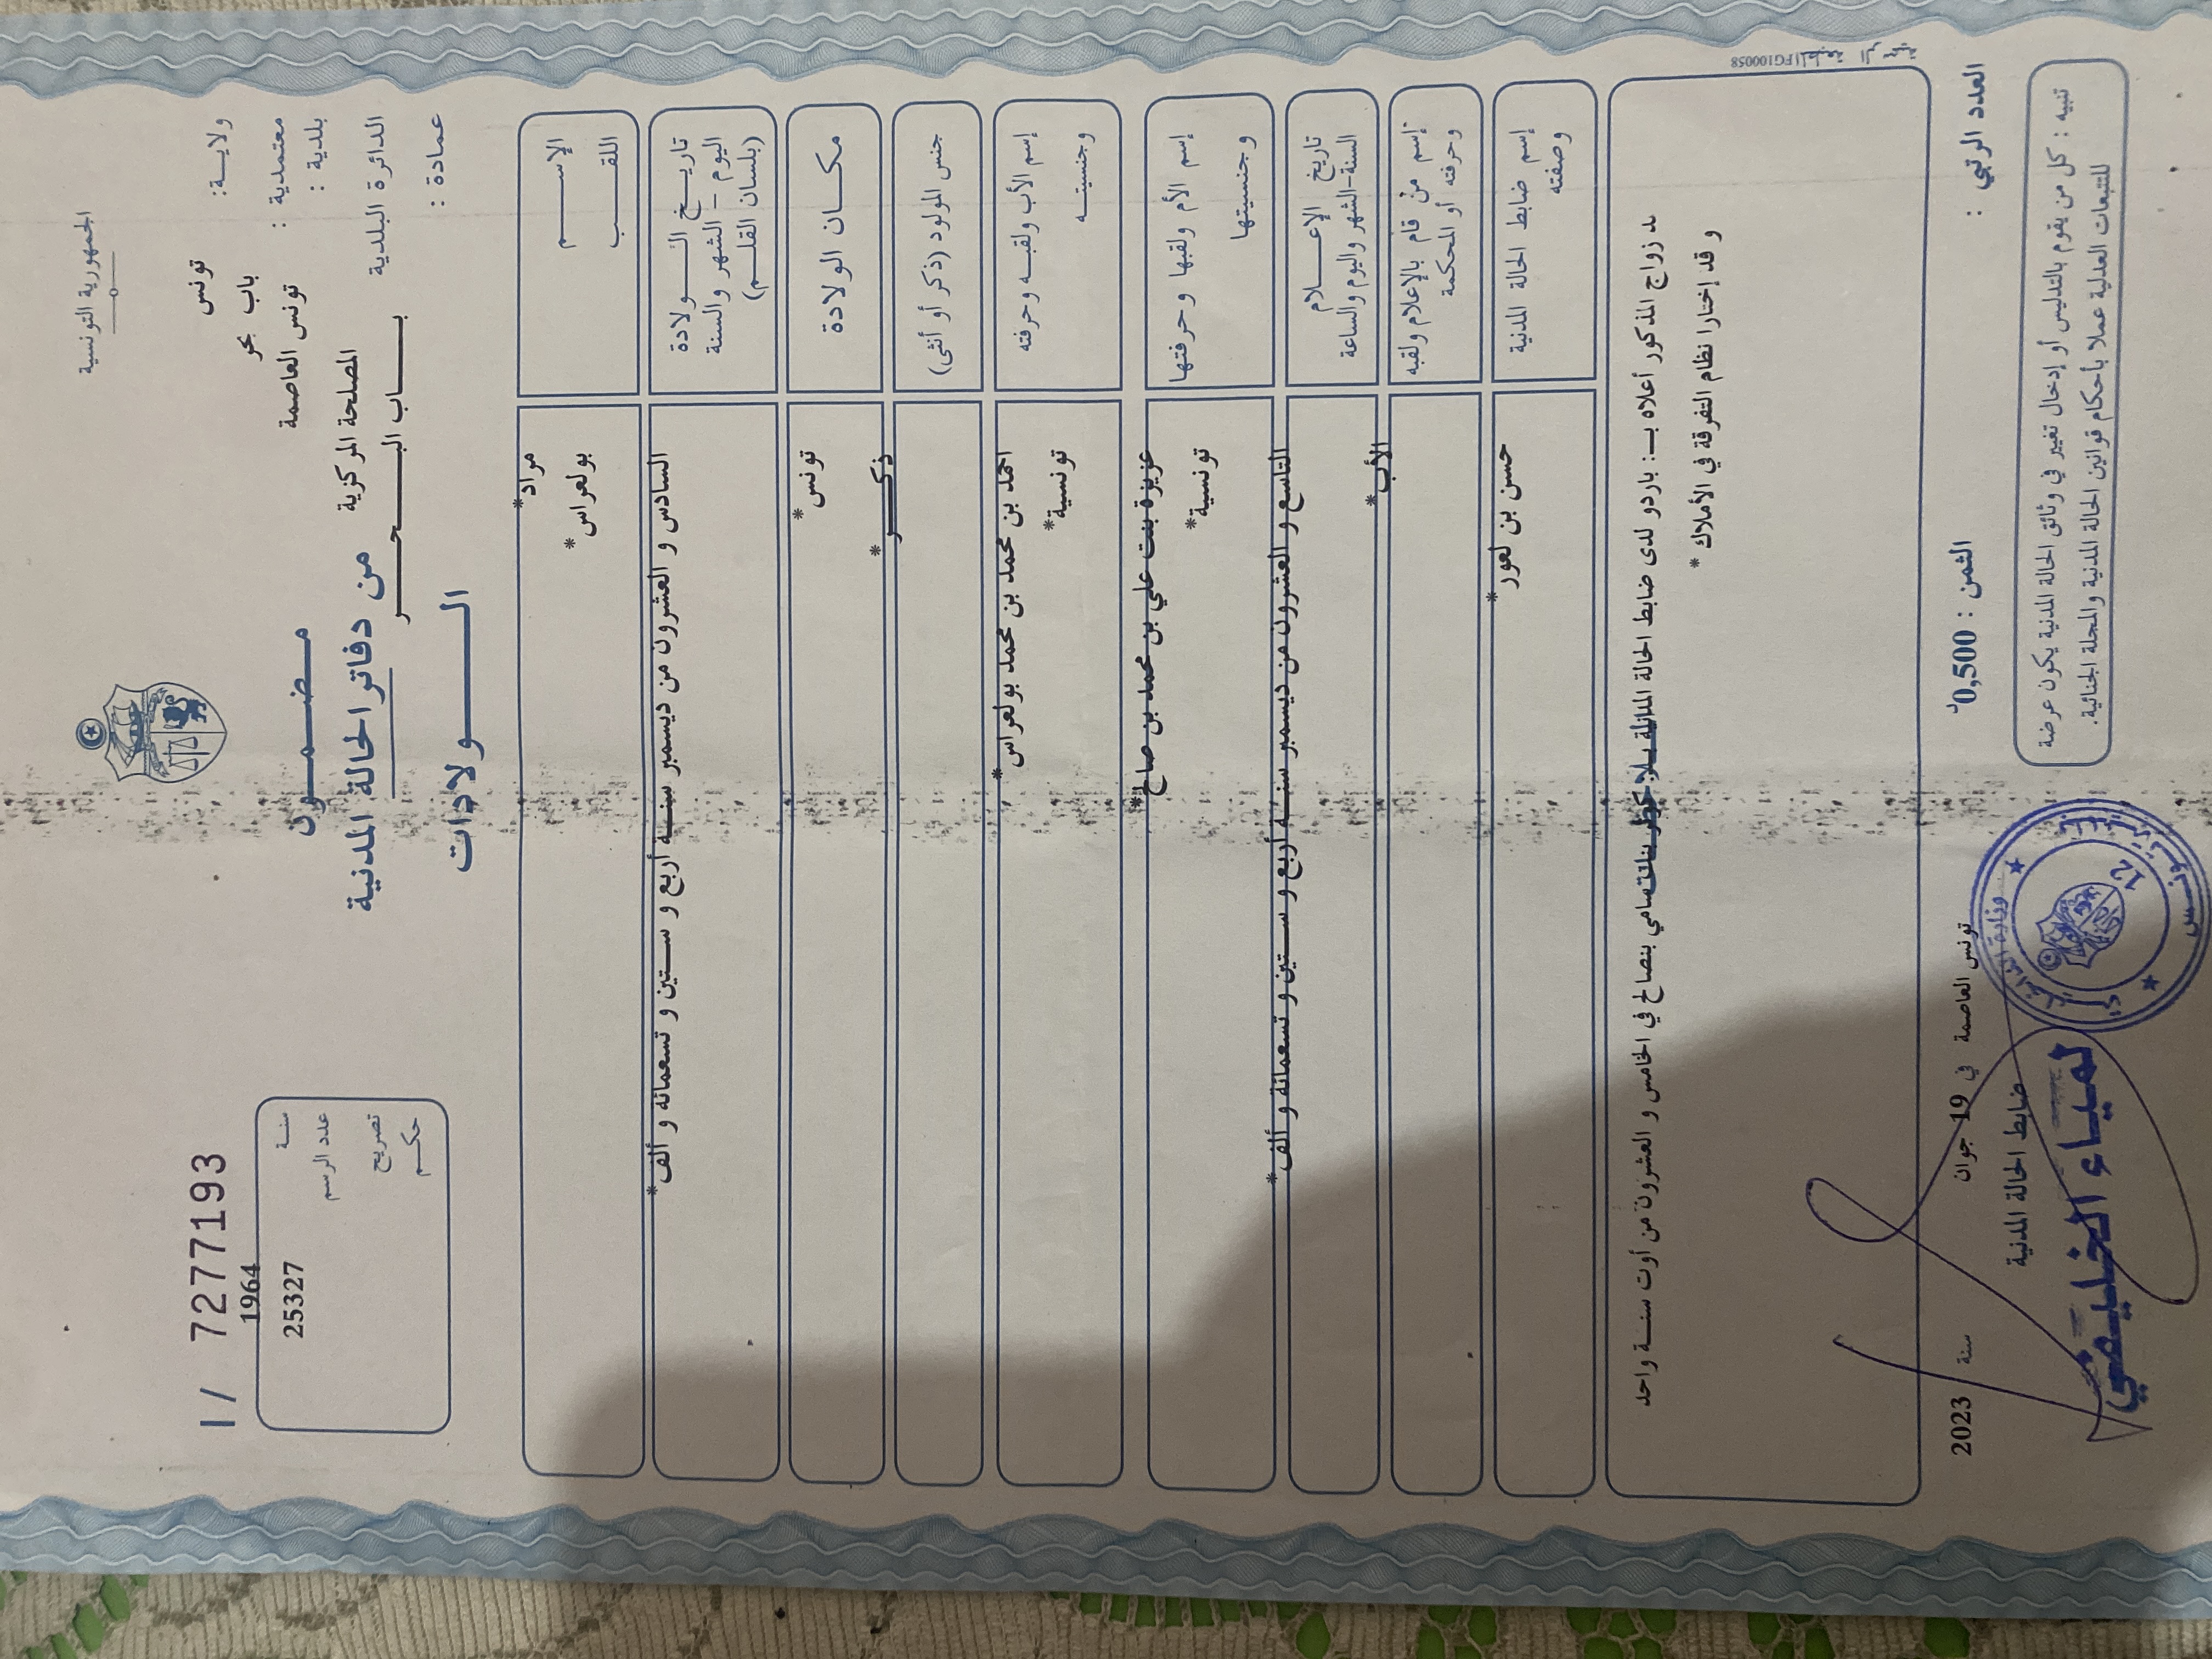 الجمهورية التونسية
ولاية: تونس
معتمدية : باب بحر
بلدية : تونس العاصمة
الدائرة البلدية المصلحة المركزية
عمادة : باب البحر
مضمون
من دفاتر الحالة المدنية
الولادات
I/ 7277193
سنة 1964
عدد الرسم 25327
تصريح
حكم
الإسم مراد*
اللقب بولعراس*
تاريخ الولادة
اليوم - الشهر والسنة
(بلسان القلم)
السادس و العشرون من ديسمبر سنة أربع و ستين و تسعمائة و ألف*
مكان الولادة تونس*
جنس المولود (ذكر أو أنثى) ذكر*
إسم الأب ولقبه وحرفته احمد بن محمد بن محمد بولعراس*
وجنسيته تونسية*
إسم الأم ولقبها وحرفتها عزيزة بنت علي بن محمد بن صالح*
وجنسيتها تونسية*
تاريخ الإعلام
السنة-الشهر واليوم والساعة
التاسع و العشرون من ديسمبر سنة أربع و ستين و تسعمائة و ألف*
إسم من قام بالإعلام ولقبه
وحرفته أو المحكمة
الأب*
إسم ضابط الحالة المدنية
وصفته
حسن بن لعور*
زواج المذكور أعلاه بـ: باردو لدى ضابط الحالة سامي بنصالح في الخامس و العشرون من أوت سنة واحد
و قد إختارا نظام التفرقة في الأملاك *
FG100058
العدد الرتبي :
الثمن : 0,500د
تونس العاصمة في 19 جوان سنة 2023
ضابط الحالة المدنية
لمياء الخليفي
تنبيه : كل من يقوم بالتدليس أو إدخال تغيير في وثائق الحالة المدنية يكون عرضة
للتتبعات العدلية عملا بأحكام قوانين الحالة المدنية والمجلة الجنائية.